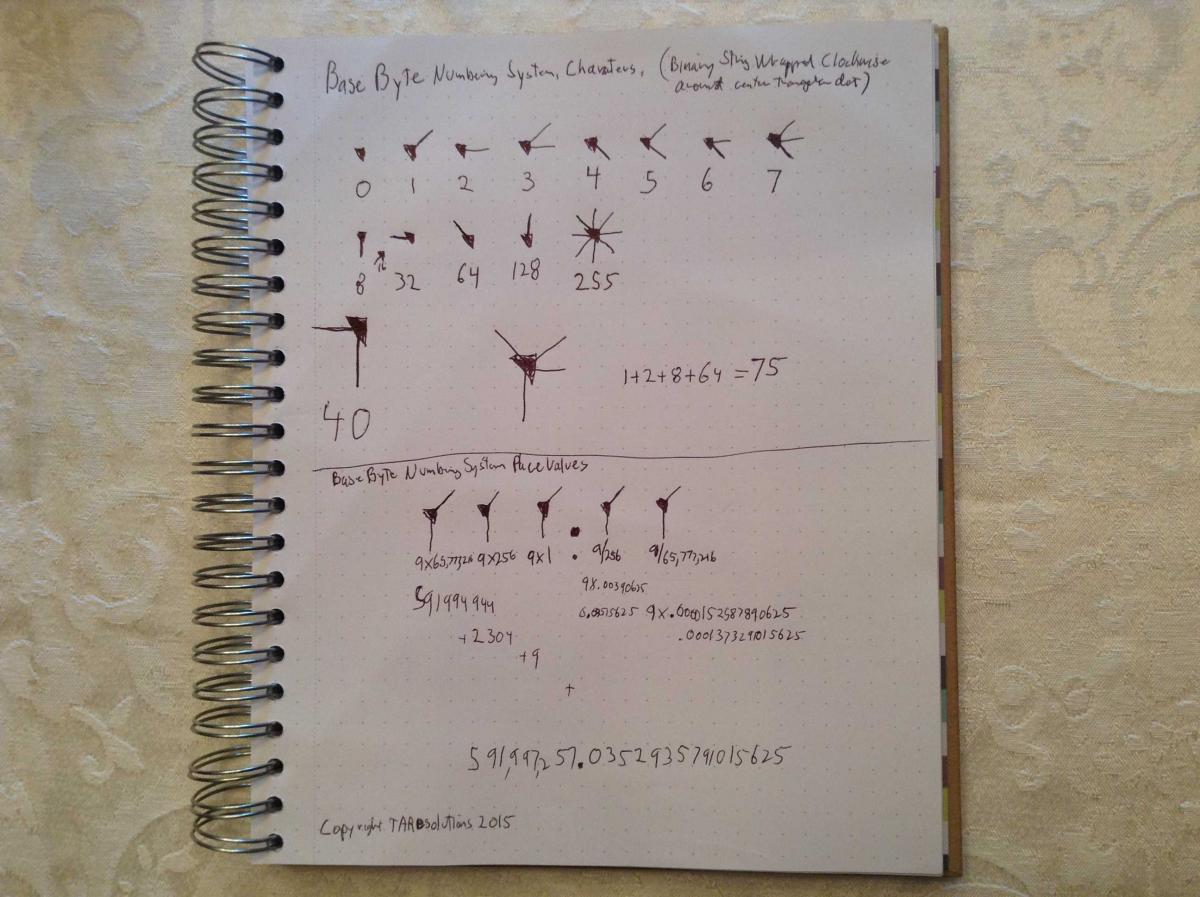 Base Byte Numbering System, Characters, (Binary String Wrapped Clockwise
around center triangular dot)
0 1 2 3 4 5 6 7
16
8 32 64 128 255
1+2+8+64 = 75
40
Base Byte Numbering System Place Values
9x65,777,216 9x256 9x1 : 9/256 9/65,777,216
9x.00390625
591994944 9x.0000152587890625
+2304 .0001373291015625
+9
+
591,997,257.0352935791015625
Copyright TARDsolutions 2015